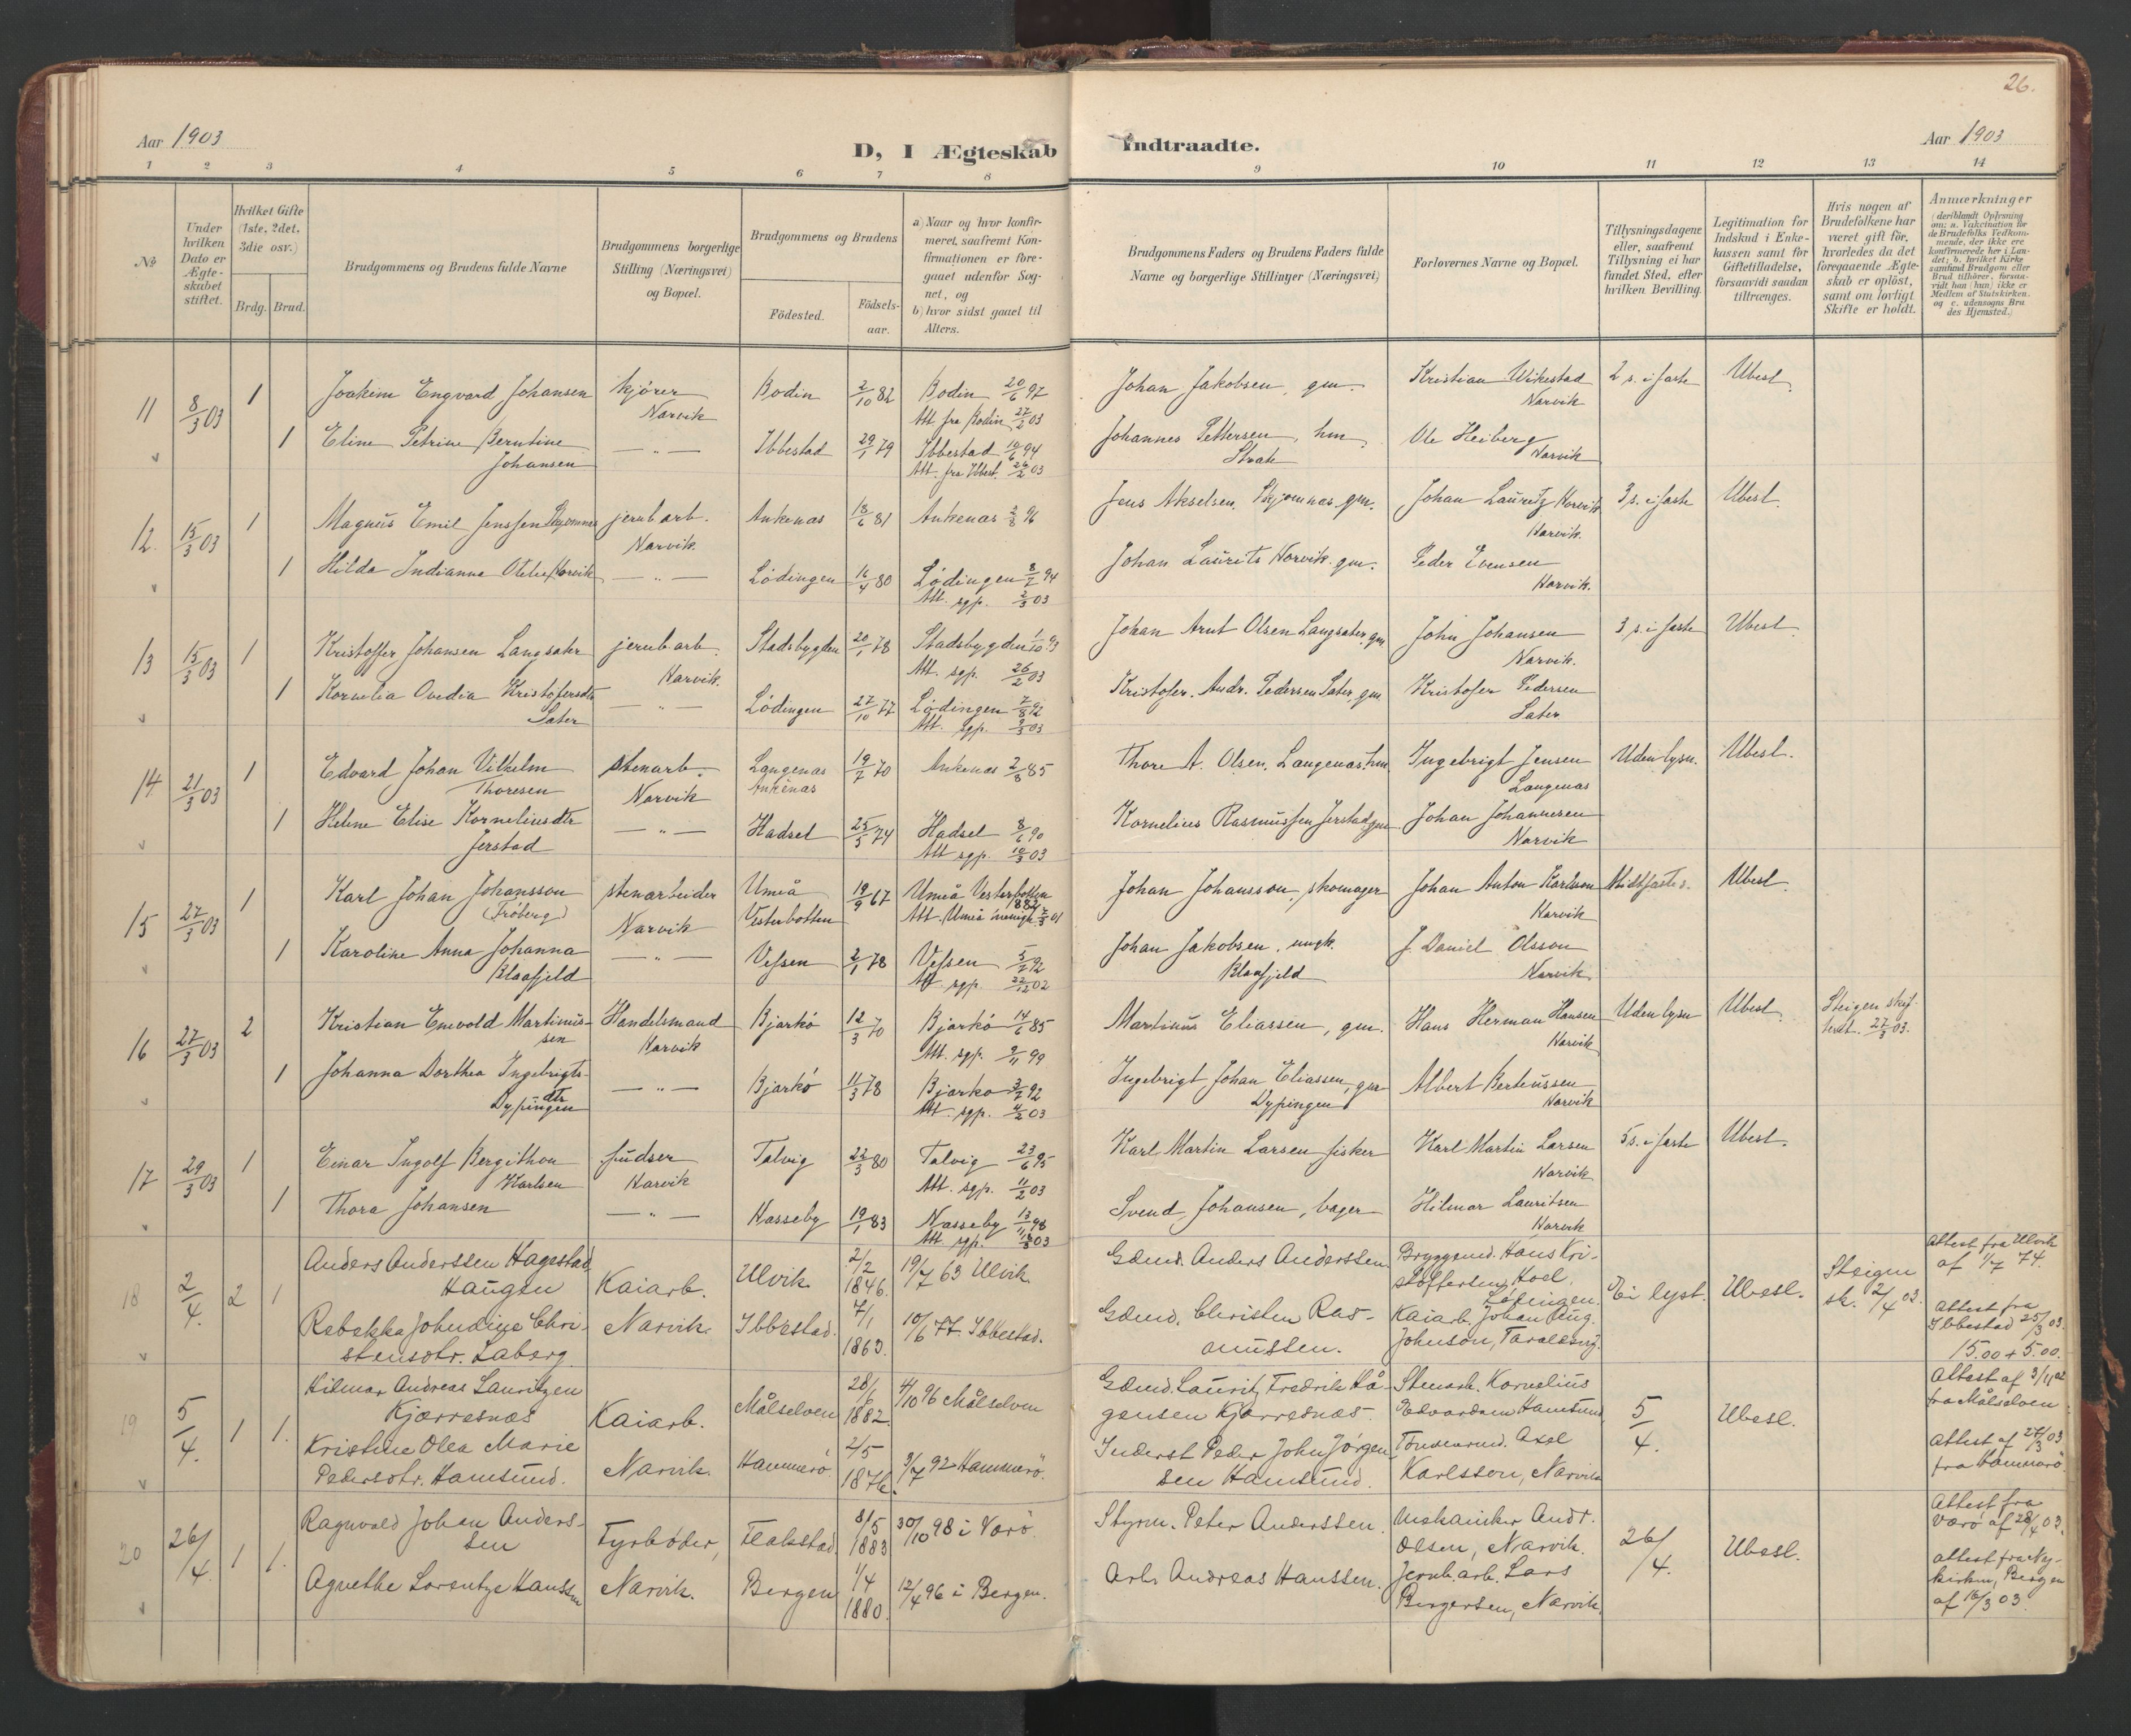 26.
Aar 1903
D, I Ægteskab Indtraadte.
Aar 1903
1 2 3 4 5 6 7 8 9 10 11 12 13 14
No
Under hvilken Dato er Ægteskabet stiftet.
Hvilket Gifte (1ste, 2det, 3die osv.)
Brdg. Brud.
Brudgommens og Brudens fulde Navne
Brudgommens borgerlige Stilling (Næringsvei) og Bopæl.
Brudgommens og Brudens
Födested.
Födsels-aar.
a) Naar og hvor konfirmeret, saafremt Konfirmationen er foregaaet udenfor Sognet, og
b) hvor sidst gaaet til Alters.
Brudgommens Faders og Brudens Faders fulde Navne og borgerlige Stillinger (Næringsvei)
Forlovernes Navne og Bopæl.
Tillysningsdagene eller, saafremt Tillysning ei har fundet Sted, efter hvilken Bevilling.
Legitimation for Indskud i Enkekassen samt for Giftetilladelse, forsaavidt saadan tiltrænges.
Hvis nogen af Brudefolkene har været gift för, hvorledes da det foregaaende Ægteskab er oplöst, samt om lovligt Skifte er holdt.
Anmærkninger
(deriblandt Oplysning om: a. Vakcination for de Brudefolks Vedkommende, der ikke ere konfirmerede her i Landet; b. hvilket Kirkesamfund Brudgom eller Brud tilhörer, forsaavidt han (hun) ikke er Medlem af Statskirken. og c. udensogns Brudes Hjemsted.)
11 8/3 03 1 Joakim Engvard Johansen kjører Narvik Bodin 2/10 82 Bodin 20/6 97 Att fra Bodin 27/2 03 Johan Jakobsen, gm. Kristian Wikestad Narvik 2 s. i faste Ubesl.
1 Eline Petrine Berntine Johansen — " — Ibbestad 29/1 79 Ibbestad 94 Att. fra Ibbest. 03 Johannes Pettersen, hm Ole Heiberg Narvik
12. 15/3 03 1 Magnus Emil Jenssen Skjomnes jernb arb. Narvik. Ankenas 18/6 81 Ankenas 2/8 96 Jens Akselsen, Skjomnas gm. Johan Lauritz Norvik Narvik. 3 s. i faste Ubesl.
1 Hilda Indianna Otelie Norvik — " — Lødingen 16/4 80 Lødingen 94 Att. sgp. 2/3 03 Johan Laurits Norvik. gm. Peder Evensen Narvik.
13 15/3 03 1 Kristoffer Johansen Langsater jernb arb. Narvik. Stadsbygden 20/1 78 Stadsbygden Att. sgp. 26/2 03 Johan Arnt Olsen Langsater, gm John Johansen Narvik. 3 s. i faste Ubesl.
1 Kornelia Ovedia Kristofersdtr Sater — " — Lødingen 27/10 77 Lødingen 7/8 92 Att. sgp. 03 Kristofer. Andr. Pedersen Sater, gm Kristofer Pedersen Sater
14 21/3 03 1 Edvard Johan Vilhelm Thoresen stenarb. Narvik Langenas Ankenas 19/7 70 Ankenas 2/8 85 Thore A. Olsen, Langenas, hm Ingebrigt Jensen Langenas Uden lysn. Ubesl.
1 Helene Elise Korneliusdtr Jerstad — " — Hadsel 25/5 74 Hadsel 8/6 90 Att sgp. 03 Kornelius Rasmussen Jerstad, gm Johan Johannesen Narvik
15 27/3 03 1 Karl Johan Johansson (Frøberg) stenarbeider Narvik Umeå Vesterbotten 19/9 67 Umeå Vesterbotten 1882 Att. Umeå menigh 01 Johan Johansson, skomager Johan Anton Karlsson Narvik Midtfaste s. Ubesl.
1 Karoline Anna Johanna Blaafjeld — " — Vefsen 2/1 78 Vefsen 92 Att sgp. 22/12 02 Johan Jakobsen, Blaafjeld J. Daniel Olsson Narvik.
16 27/3 03 2 Kristian Enevold Martinussen Handelsmand Narvik Bjarkö 12/3 70 Bjarkö 14/6 85 Att. sgp. 9/11 99 Martinus Eliassen, gm. Hans Herman Hansen Narvik Uden lysn Ubesl. Steigen skif. 27/3 03.
1 Johanna Dorthea Ingebrigtsdtr Dypingen — " — Bjarkö 11/3 78 Bjarko 92 Att. sgp. 03 Ingebrigt Johan Eliassen, gm Dypingen Albert Berteussen Narvik
17 29/3 03 1 Einar Ingolf Bergithon Karlsen pudser Narvik Talvig 22/3 80 Talvig 23/6 95 Att. sgp. 11/2 03 Karl Martin Larsen fisker Karl Martin Larsen Narvik 5 s. i faste Ubesl.
1 Thora Johansen — " — Nasseby 19/1 83 Nasseby 98 Att. sgp. 03 Svend Johansen, bager Hilmar Lauritsen Narvik
18 2/4. 2 1 Anders Anderssen Hagestad Haugen Kaiarb. Ulvik 2/2 1846. 19/7 63 Ulvik. Gdmd. Anders Anderssen. Bryggemd. Hans Kristoffersen, Hoel, Lødingen. Ei lyst. Ubesl. Steigen sk. 2/4 03. Attest fra Ulvik af 1/7 74.
Rebekka Johndine Christensdtr. Laberg. Narvik. Ibbestad. 7/1 1863. 10/6 77 Ibbestad. Gdmd. Christen Rasmussen. Kaiarb. Johan Aug. Johnson, Taraldsvig. Attest fra Ibbestad 25/3 03. 15.00 + 5.00.
19 5/4. 1 1. Hilmar Andreas Lauritzen Kjærresnæs Kaiarb. Målselven 28/6 1882. 4/10 96 Målselven Gdmd. Lauritz Fredrik Hågensen Kjærresnæs. Stenarb. Kornelius Edvardsen Hamsund 5/4. Ubesl. Attest af 3/11 02 fra Målselven
Kristine Olea Marie Pedersdtr. Hamsund. Narvik. Hammerö. 2/5 1876. 3/7 92 Hammerö. Inderst Peder John Jörgensen Hamsund. Axel Karlsson, Narvik Attest af 27/3 03 fra Hammerö.
20 26/4. 1 1. Ragnvald Johan Anderssen Fyrbøder, Flakstad 31/5 1883 30/10 98 i Værö. Styrm. Peter Anderssen. Mekaniker Andr. Olsen, Narvik. 26/4. Ubesl. Attest fra Værö af 28/4 03.
Agnethe Lorentze Hanssen Narvik. Bergen 1/4 1880. 12/4 96 i Bergen. Arb. Andreas Hanssen. Jernb. arb. Lars Birgersen, Narvik. attest fra Nykirken, Bergen af 16/3 03.